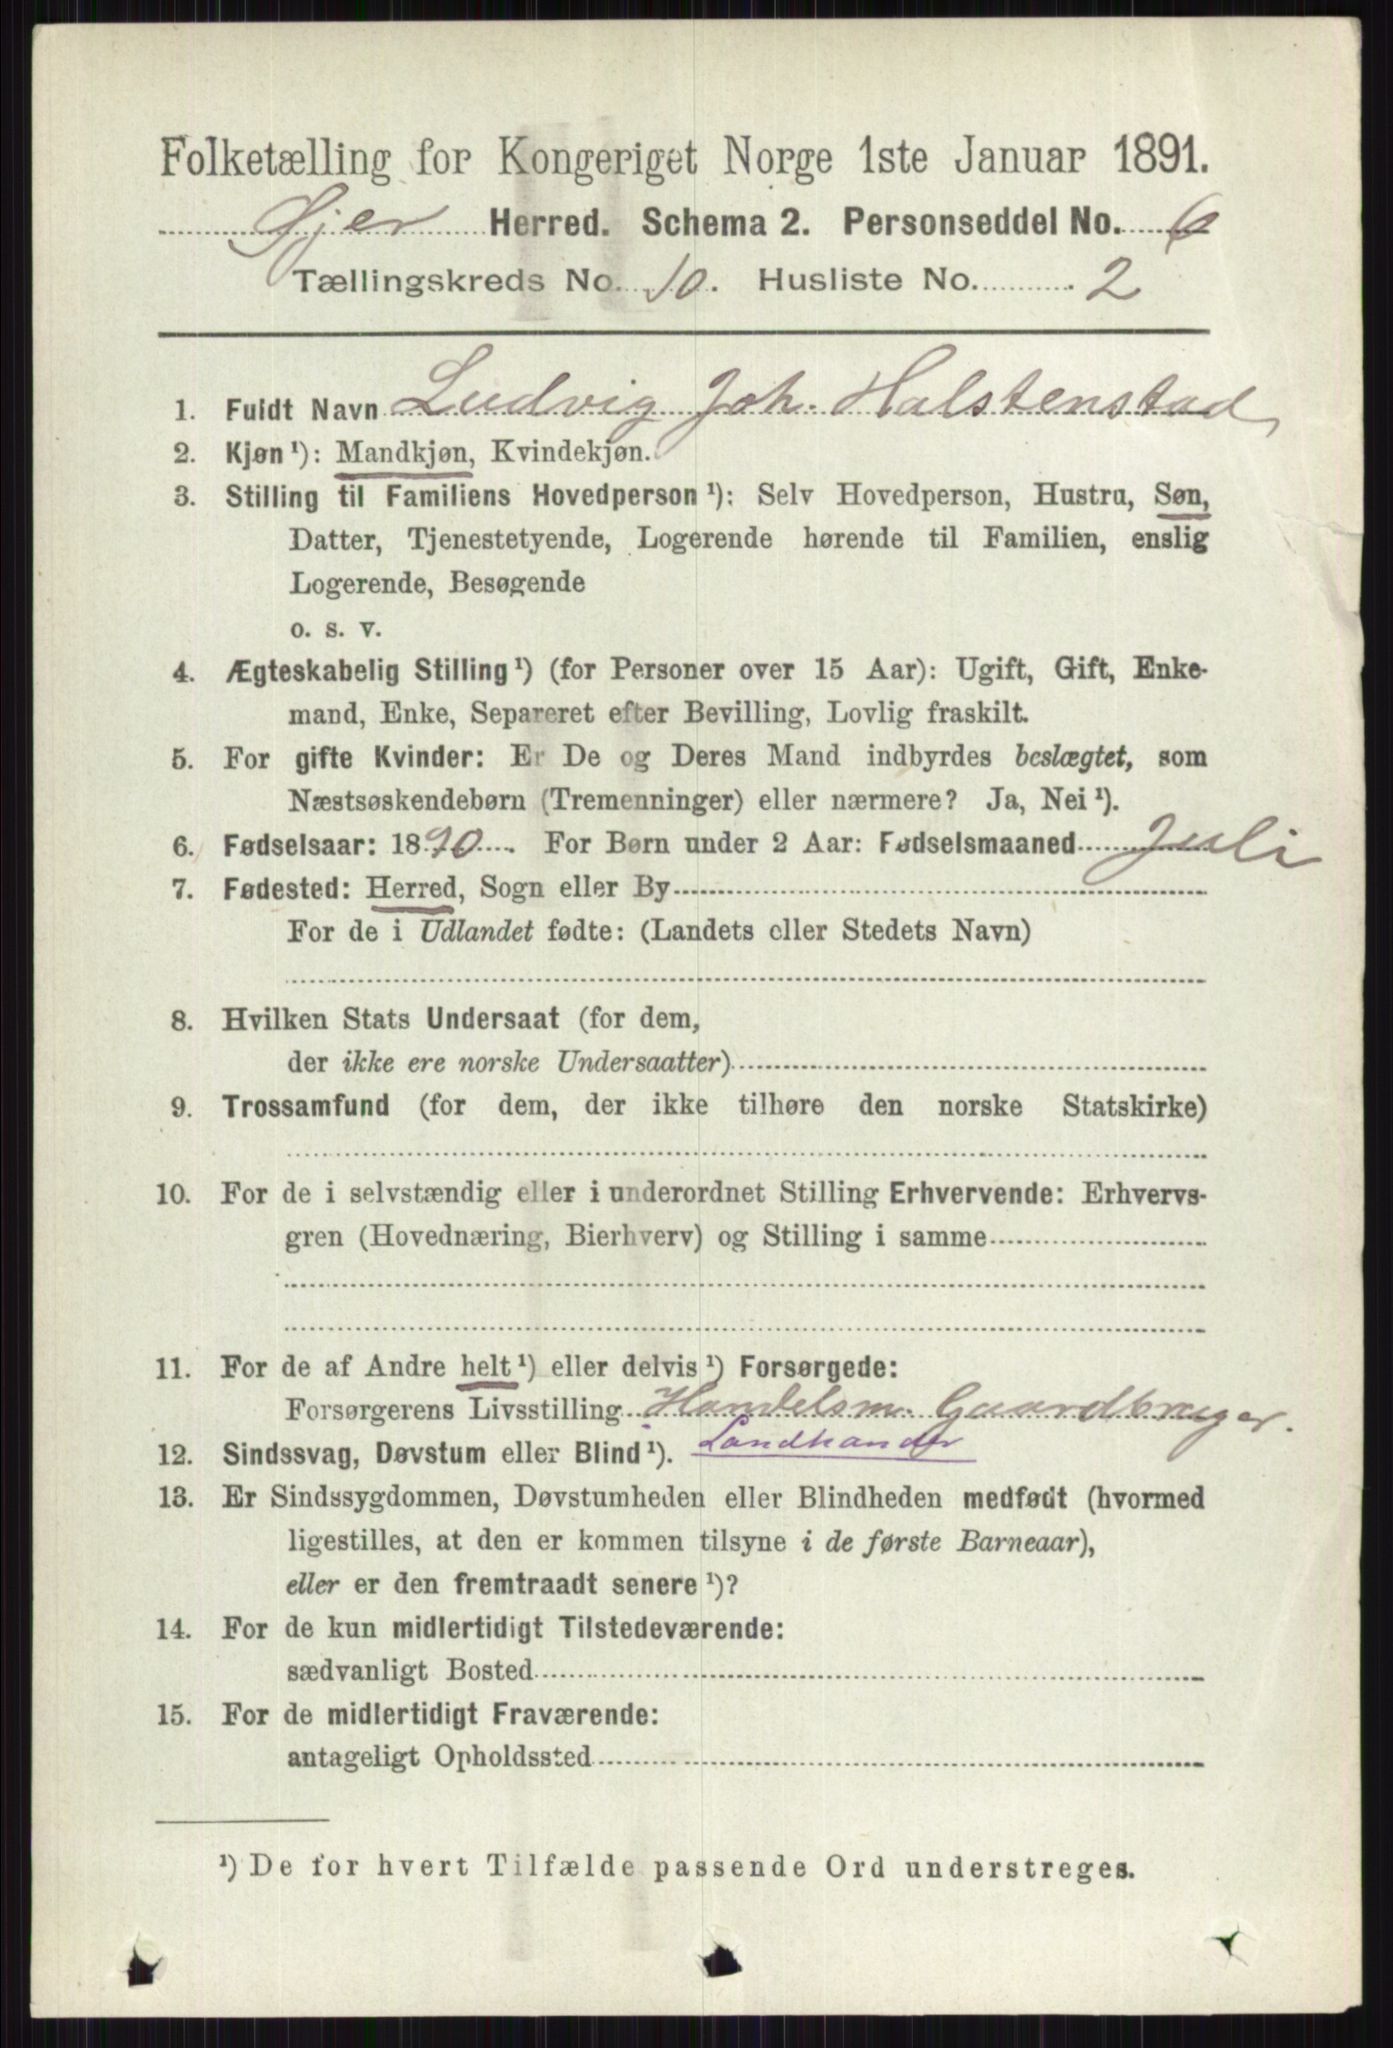 Folketælling for Kongeriget Norge 1ste Januar 1891.
Øjer Herred. Schema 2. Personseddel No. 6
Tællingskreds No. 10. Husliste No. 2
1. Fuldt Navn Ludvig Joh. Halstenstad
2. Kjøn¹): Mandkjøn, Kvindekjøn.
3. Stilling til Familiens Hovedperson¹): Selv Hovedperson, Hustru, Søn,
Datter, Tjenestetyende, Logerende hørende til Familien, enslig
Logerende, Besøgende
o. s. v.
4. Ægteskabelig Stilling¹) (for Personer over 15 Aar): Ugift, Gift, Enke-
mand, Enke, Separeret efter Bevilling, Lovlig fraskilt.
5. For gifte Kvinder: Er De og Deres Mand indbyrdes beslægtet, som
Næstsøskendebørn (Tremenninger) eller nærmere? Ja, Nei¹).
6. Fødselsaar: 1890. For Børn under 2 Aar: Fødselsmaaned Juli
7. Fødested: Herred, Sogn eller By
For de i Udlandet fødte: (Landets eller Stedets Navn)
8. Hvilken Stats Undersaat (for dem,
der ikke ere norske Undersaatter)
9. Trossamfund (for dem, der ikke tilhøre den norske Statskirke)
10. For de i selvstændig eller i underordnet Stilling Erhvervende: Erhvervs-
gren (Hovednæring, Bierhverv) og Stilling i samme
11. For de af Andre helt¹) eller delvis¹) Forsørgede:
Forsørgerens Livsstilling Handelsm. Gaardbruger.
Landhander
12. Sindssvag, Døvstum eller Blind¹).
13. Er Sindssygdommen, Døvstumheden eller Blindheden medfødt (hvormed
ligestilles, at den er kommen tilsyne i de første Barneaar),
eller er den fremtraadt senere¹)?
14. For de kun midlertidigt Tilstedeværende:
sædvanligt Bosted
15. For de midlertidigt Fraværende:
antageligt Opholdssted
¹) De for hvert Tilfælde passende Ord understreges.